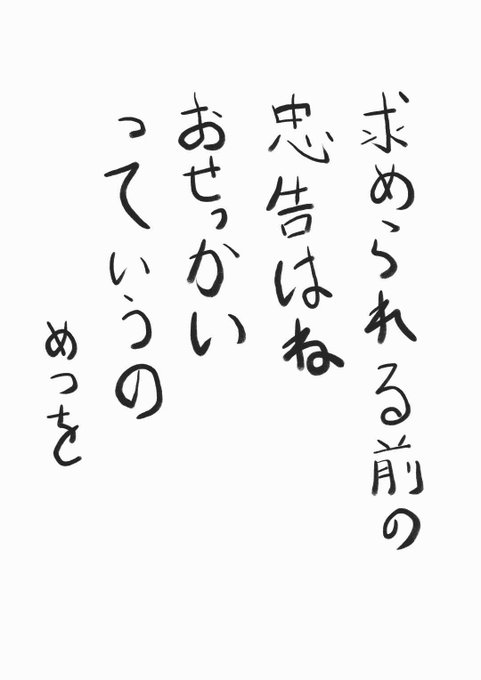 求められる前の
忠告はね
おせっかい
っていうの
めつを